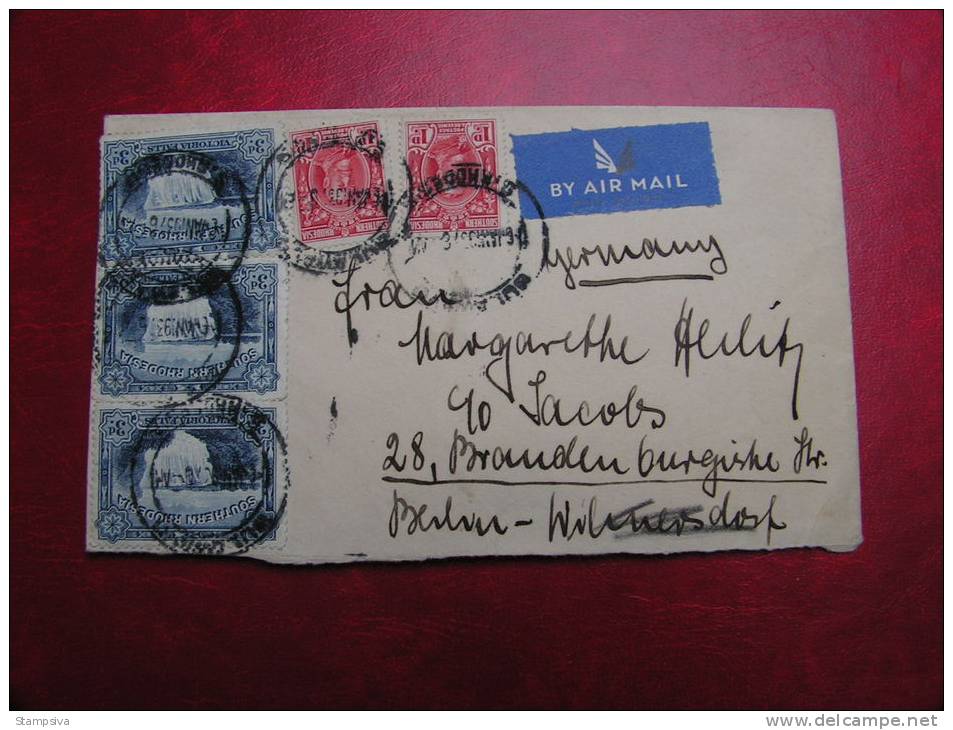 3d VICTORIA FALLS 3d
SOUTHERN RHODESIA
3d
SOUTHERN RHODESIA
3d VICTORIA FALLS 3d
SOUTHERN RHODESIA
1D POSTAGE & REVENUE 1D
SOUTHERN RHODESIA
SOUTHERN RHODESIA
BY AIR MAIL
Germany
Frau
Margarethe
c/o Jacobs
28, Brandenburgische Str.
Berlin - Wilmersdorf
Stampsiva
www.delcampe.net